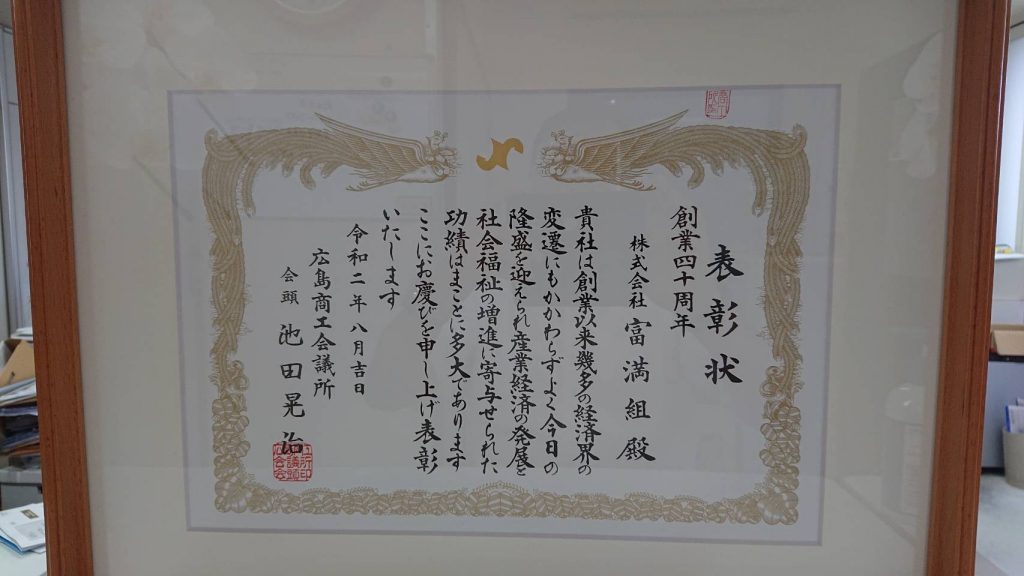 表彰状
創業四十周年
株式会社 富満組殿
貴社は創業以来幾多の経済界の
変遷にもかかわらずよく今日の
隆盛を迎えられ産業経済の発展と
社会福祉の増進に寄与せられた
功績はまことに多大であります
ここにお慶びを申し上げ表彰
いたします
令和二年八月吉日
広島商工会議所
会頭 池田晃治